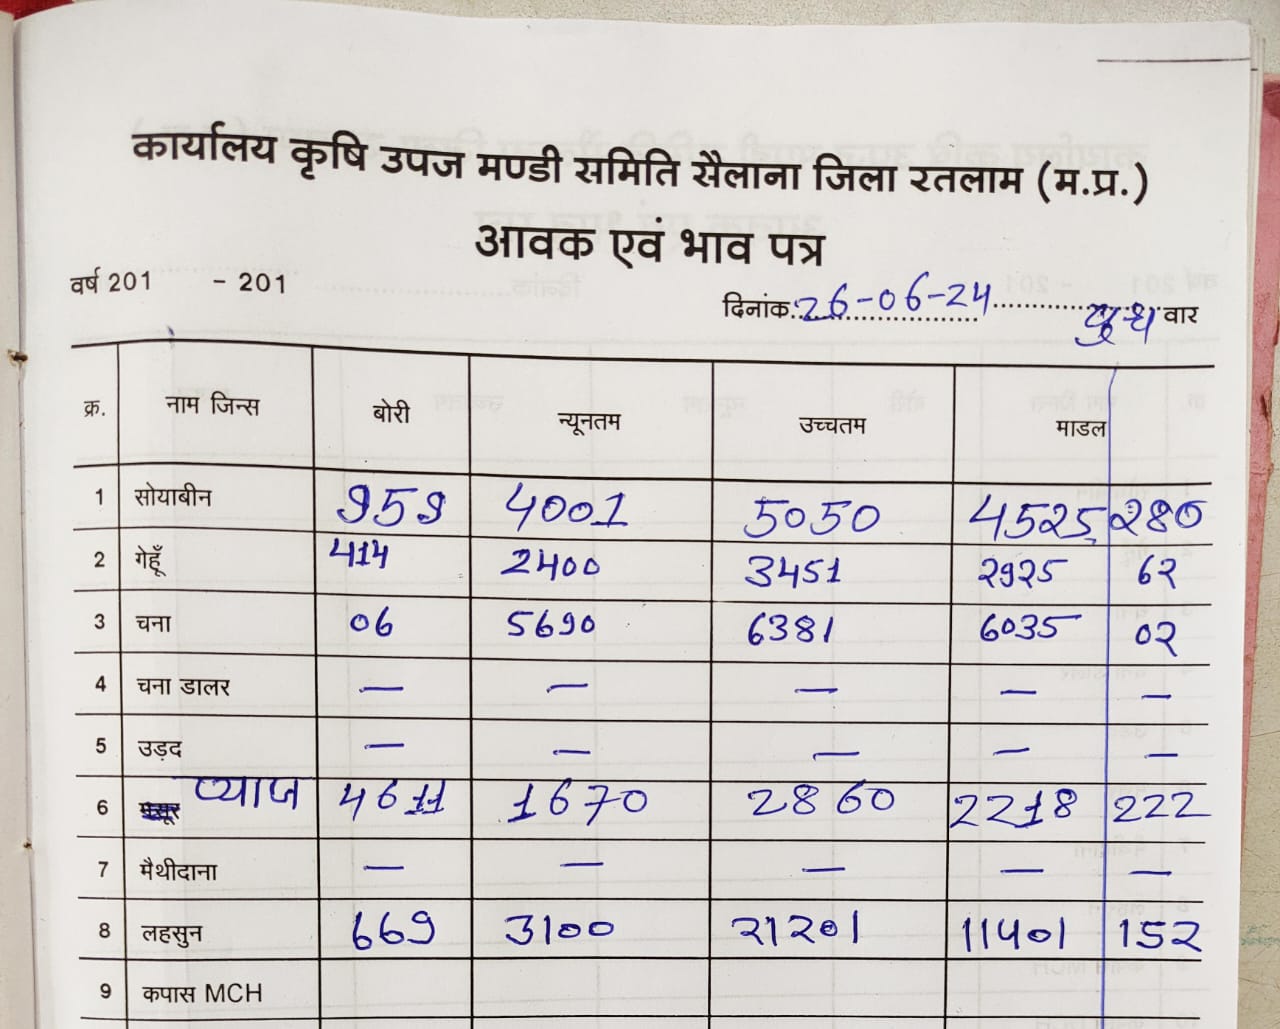 कार्यालय कृषि उपज मण्डी समिति सैलाना जिला रतलाम (म.प्र.)
आवक एवं भाव पत्र
वर्ष 201 - 201
दिनांक 26-06-24 बुध वार
क्र. नाम जिन्स बोरी न्यूनतम उच्चतम माडल
1 सोयाबीन 959 4001 5050 4525 280
2 गेहूँ 414 2400 3451 2925 62
3 चना 06 5690 6381 6035 02
4 चना डालर — — — — —
5 उड़द — — — — —
6 मसूर प्याज 4611 1670 2860 2218 222
7 मैथीदाना — — — — —
8 लहसुन 669 3100 21201 11401 152
9 कपास MCH